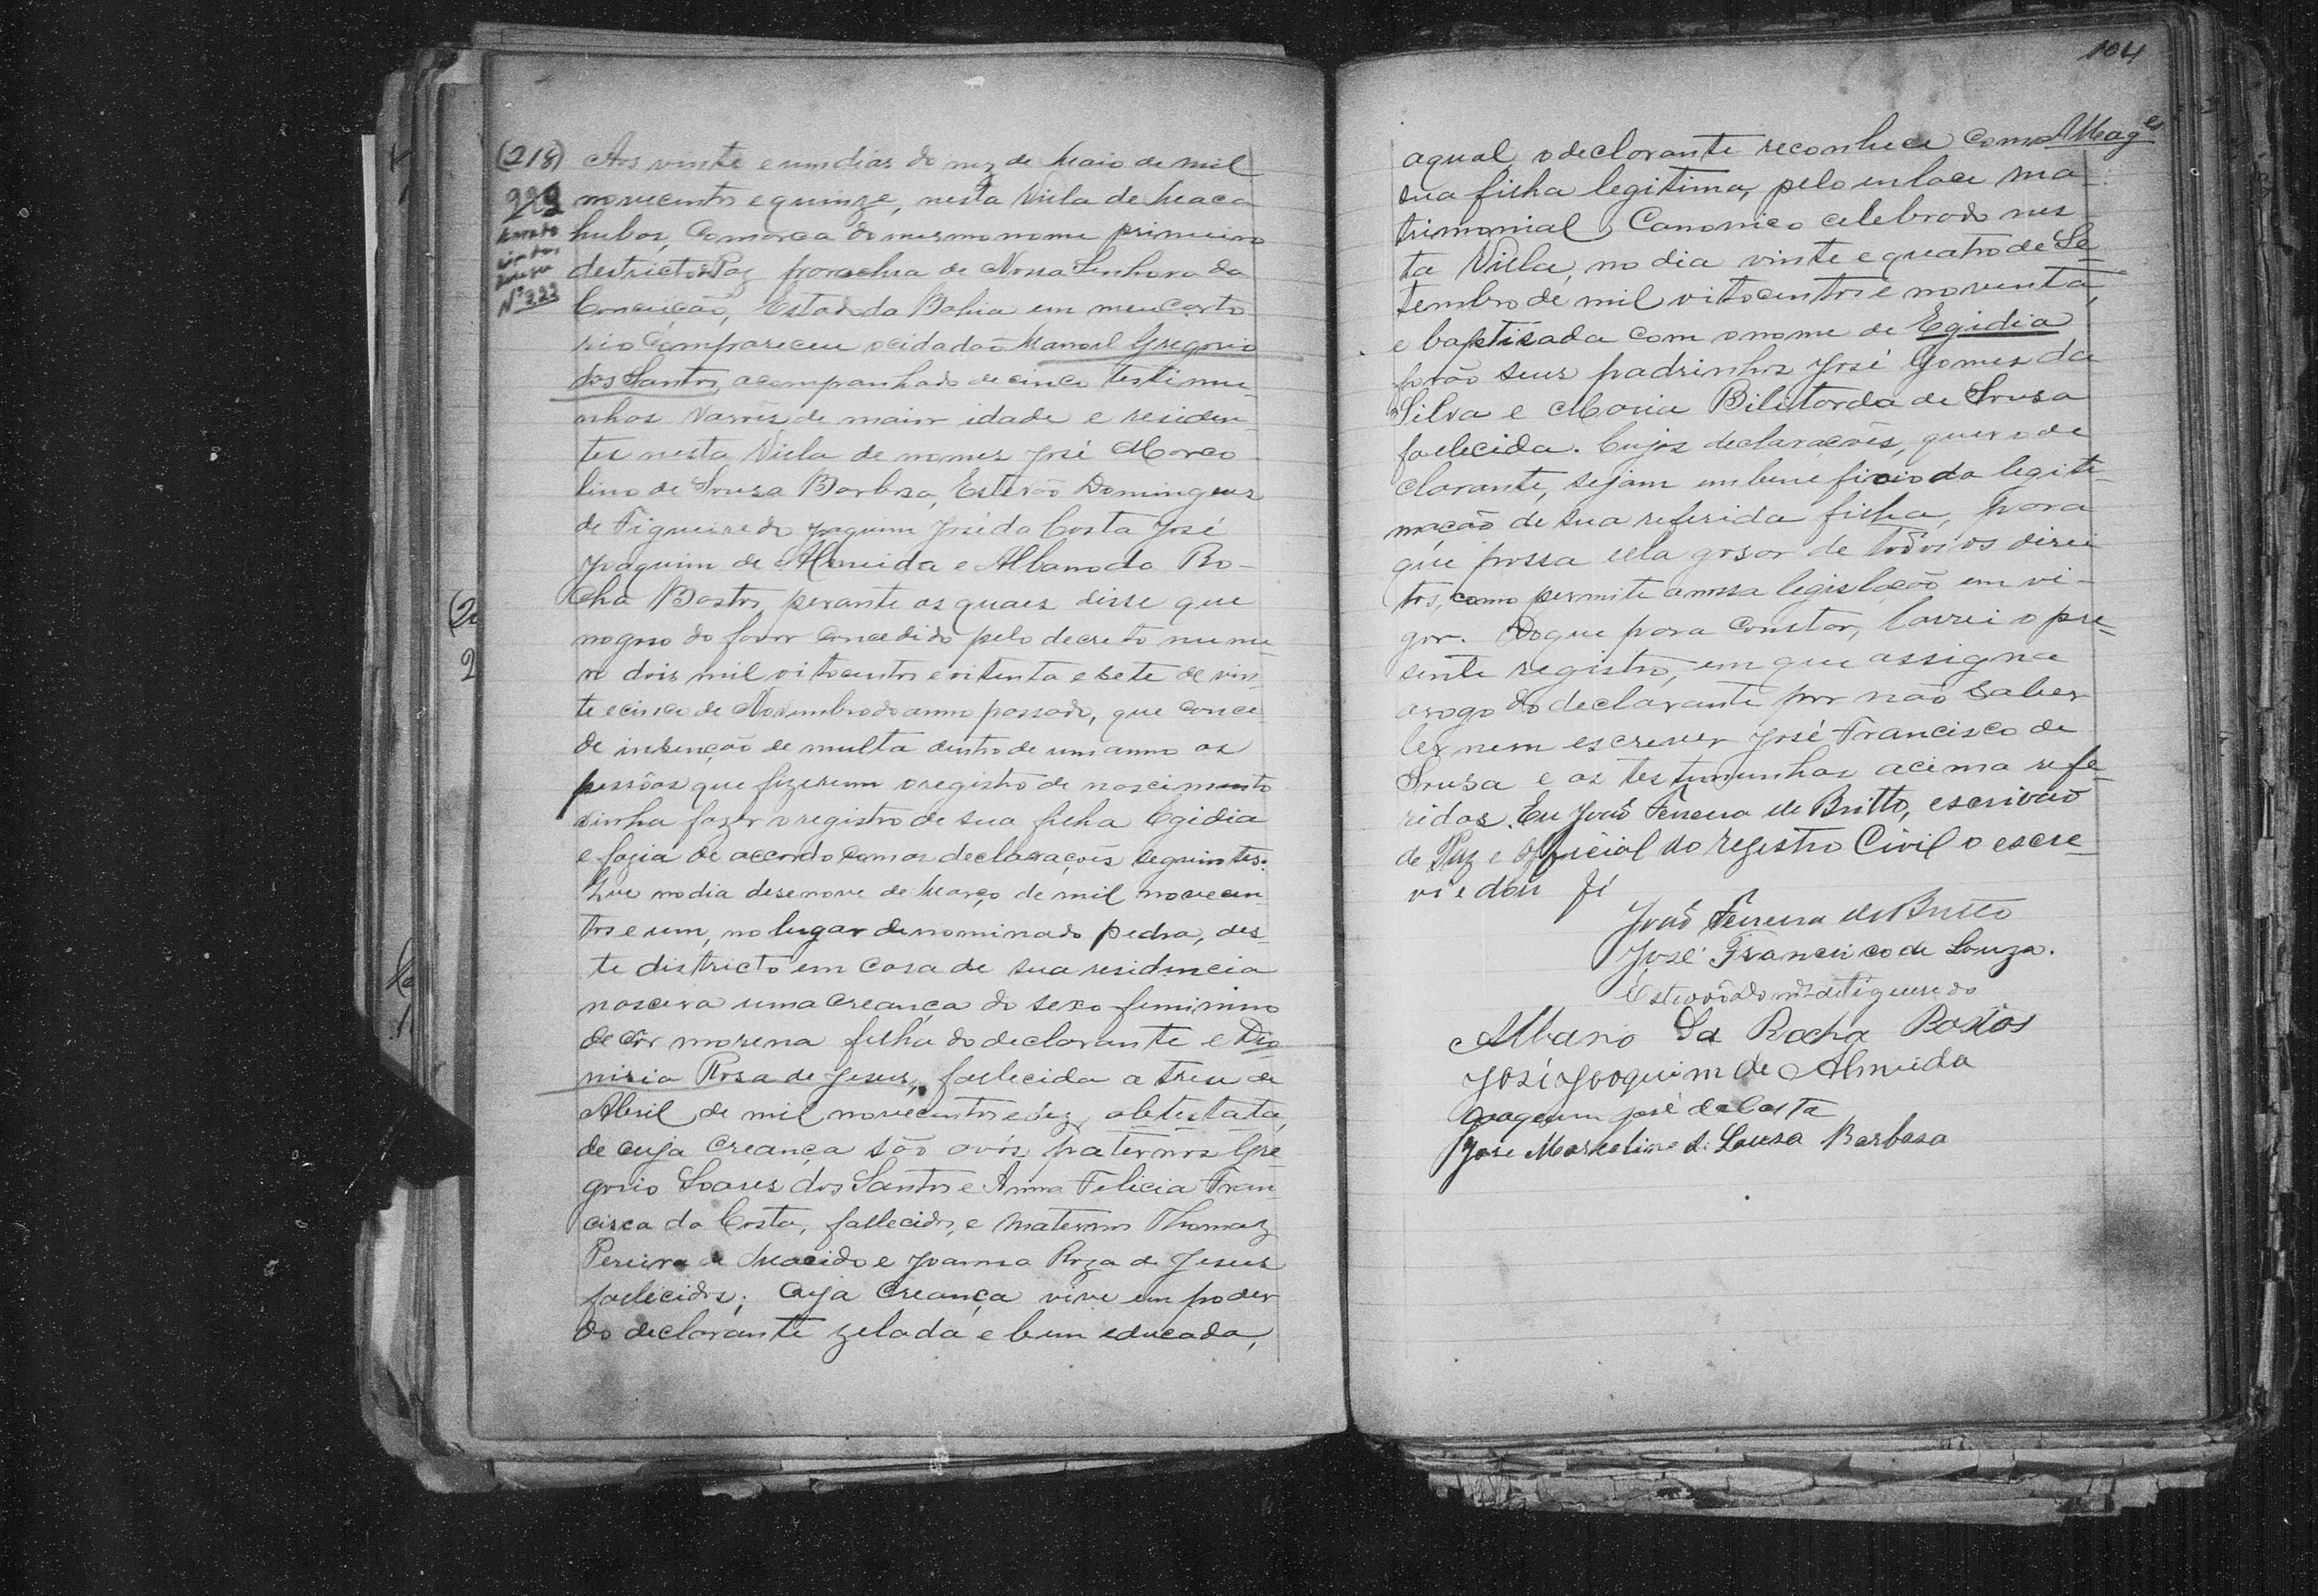 (218) Aos vinte e um dias do mez de Maio de mil
novecentos e quinze, nesta Villa de Maca
hubas, Comarca do mesmo nome primeiro
destricto de Paz parochia de Nossa Senhora da
Conceição, Estado da Bahia em meu carto
rio compareceu o cidadão Manoel Gregorio
dos Santos, acompanhado de cinco testimu
nhas varões de maior idade e residen
tes nesta Villa de nomes José Marco
lino de Sousa Barbosa, Estevão Domingues
de Figueiredo Joaquim José da Costa José
Joaquim de Almeida e Albano da Ro-
cha Bastos, perante as quaes disse que
no goso do favor concedido pelo decreto nume
ro dois mil oitocentos e oitenta e sete de vin
te e cinco de Novembro do anno passado, que conce
de insenção de multa dentro de um anno as
pessôas que fizerem o registro de nascimento
vinha fazer o registro de sua filha Egidia
e fazia de accordo com as declarações seguintes:
Que no dia desenove de Março de mil novecen
tos e um, no lugar denominado pedra, des
te districto em casa de sua residencia
nascera uma creança do sexo feminino
de côr morena filha do declarante e Dio
nisia Rosa de Jesus, fallecida a trese de
Abril de mil novecentos e dez, abtestata,
de cuja creança são avós paternos Gre
gorio Soares dos Santos e Anna Felicia Fran
cisca da Costa, fallecidos, e maternos Thomaz
Pereira de Macido e Joanna Roza de Jesus
fallecidos; cuja creança vive em poder
do declarante zelada e bem educada,
222
Nº 222
104
a qual o declarante reconhece como Mag es
sua filha legitima, pelo enlace ma-
trimonial Canonico celebrado nes
ta Villa, no dia vinte e quatro de Se
tembro de mil oitocentos e noventa,
e baptisada com o nome de Egidia
forão seus padrinhos José Gomes da
Silva e Maria Bilitarda de Sousa
fallecida. Cujas declarações, quer o de
clarante, sejam em beneficio da legiti
mação de sua referida filha, para
que possa ella gosar de todos os direi
tos, como permite a nossa legislação em vi-
gor. Do que para constar, lavrei o pre-
sente registro, em que assigna
a rogo do declarante por não saber
ler nem escrever José Francisco de
Sousa e as testemunhas acima refe-
ridas. Eu João Ferreira de Britto, escrivão
de Paz e official do registro Civil o escre-
vi e dou fé
João Ferreira de Britto
José Francisco de Souza.
Estevão dom es de Figueiredo
Albano Da Rocha Bastos
José Joaquim de Almeida
Joaquim José da Costa
José Marcolino de Sousa Barbosa